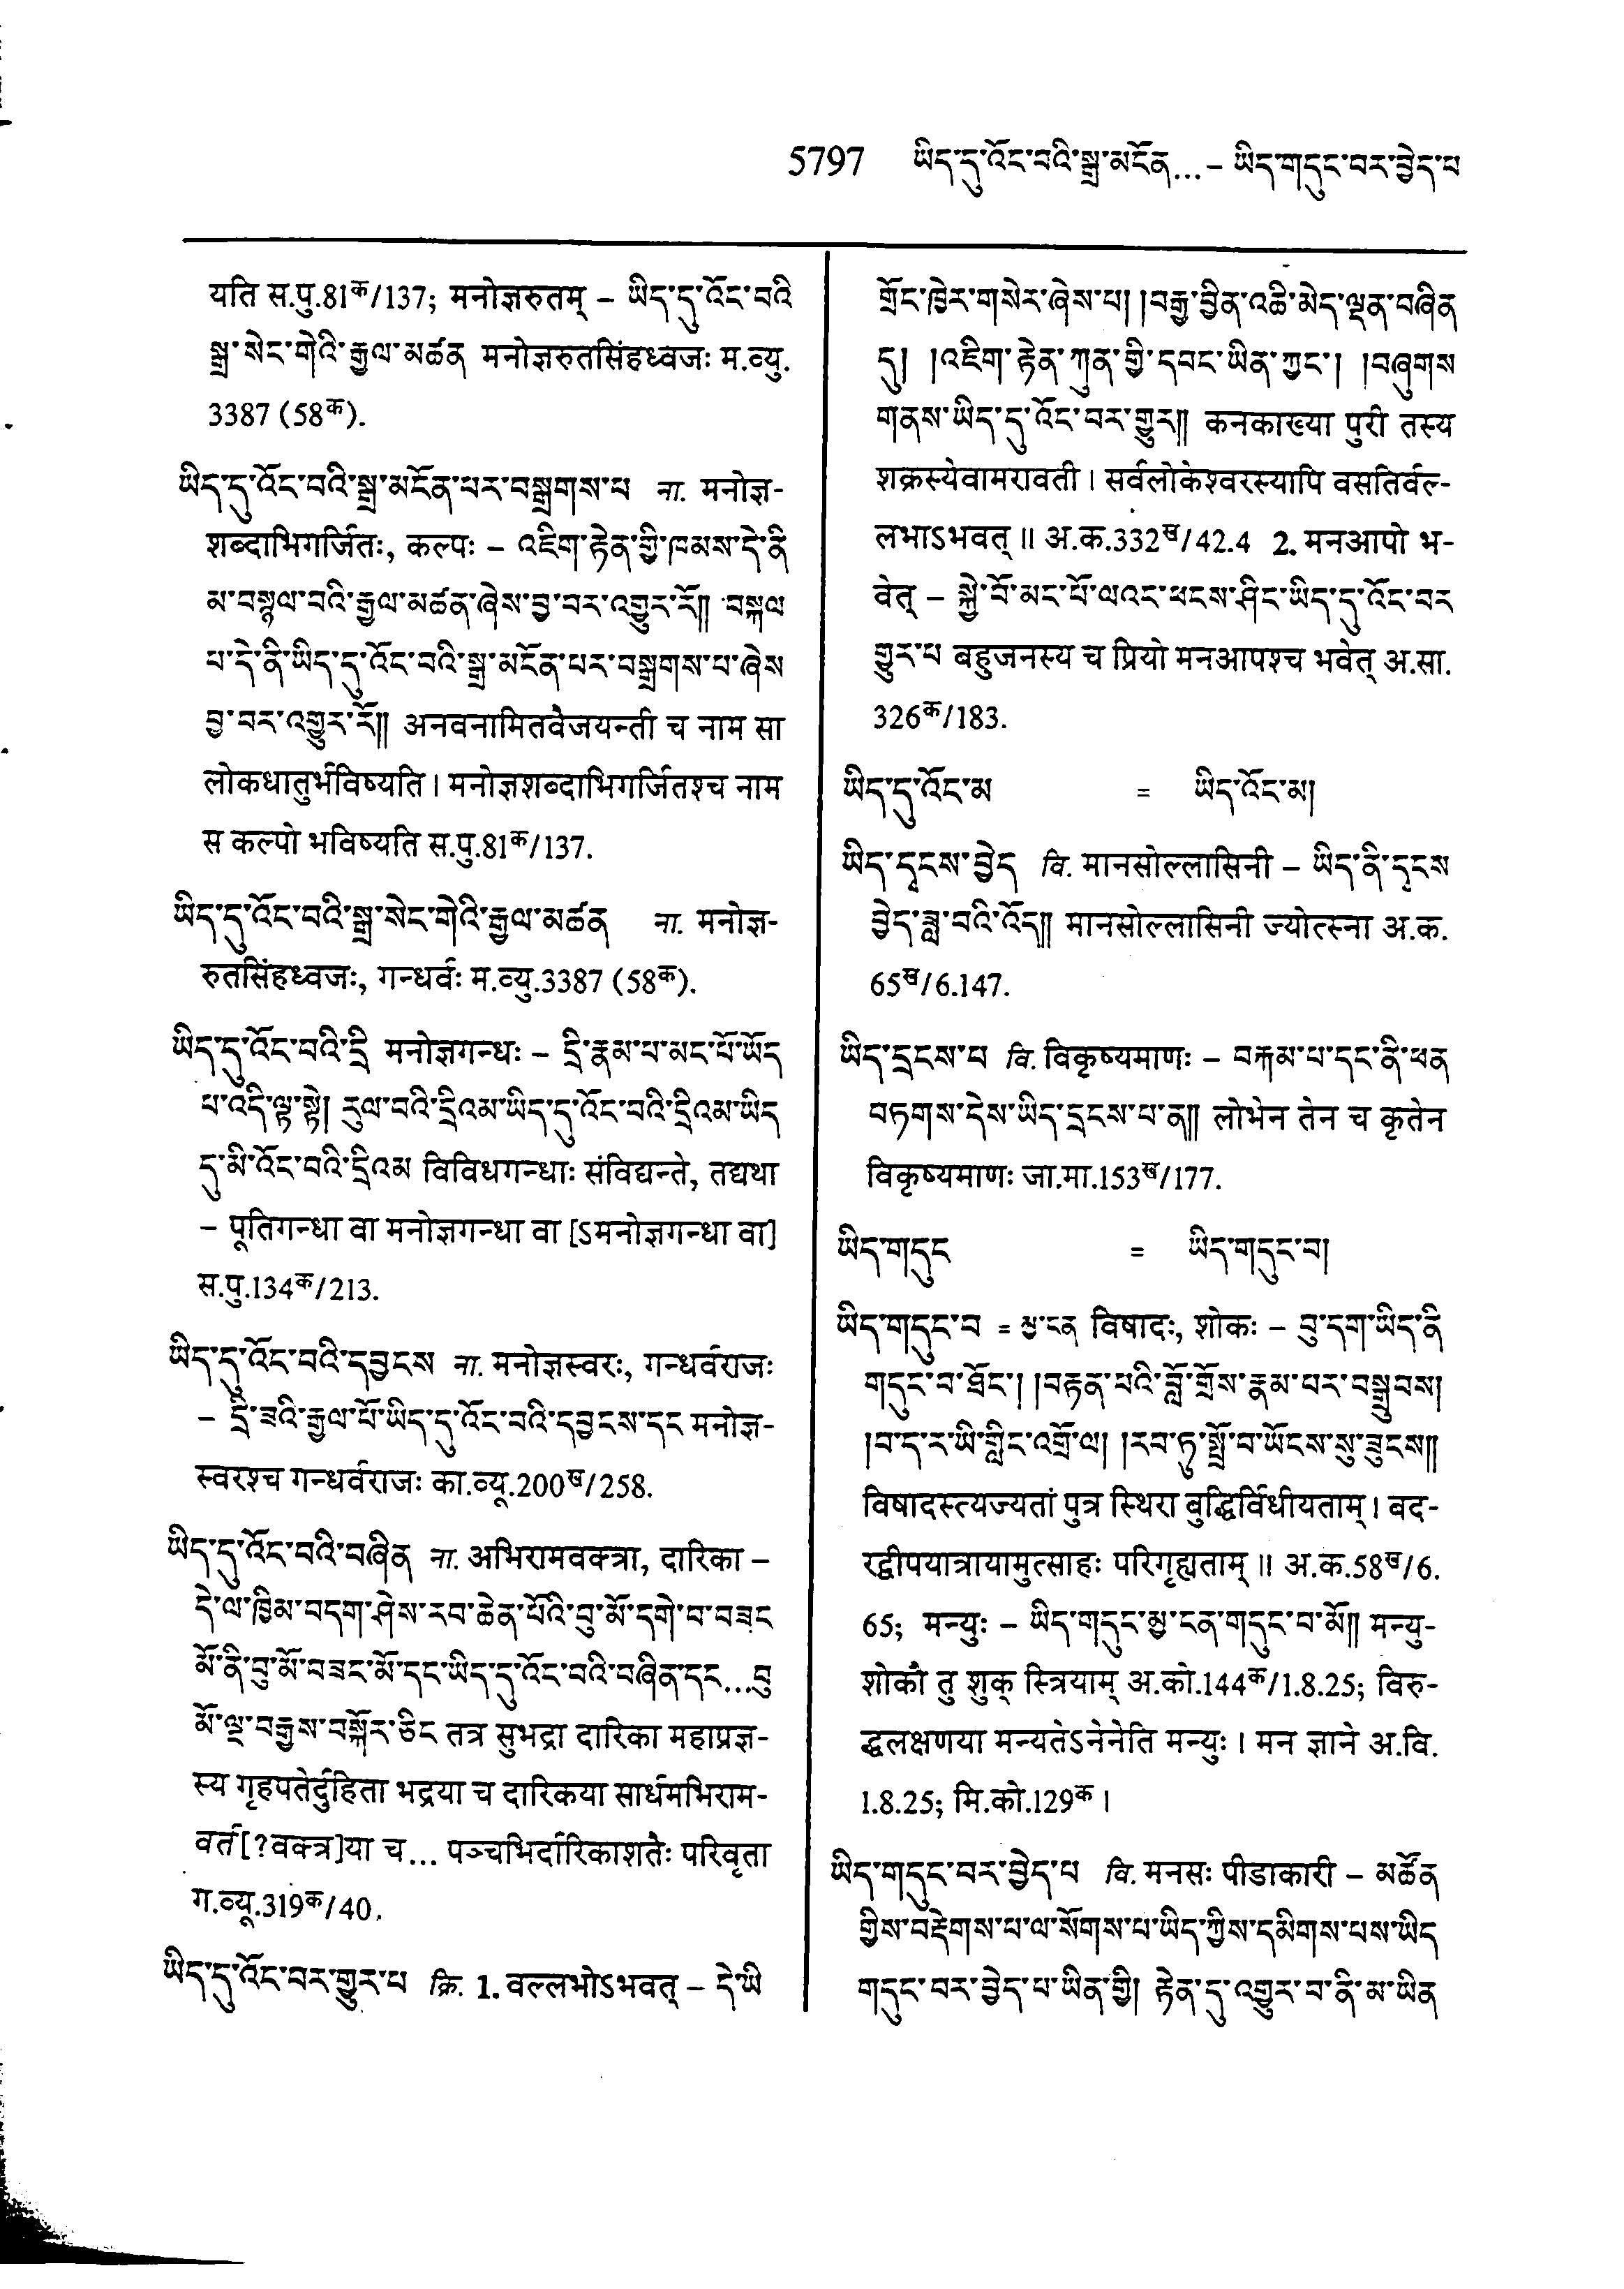 5797 ཡིད་དུ་འོང་བའི་སྒྲ་མངོན...– ཡིད་གདུང་བར་བྱེད་པ
यति स.पु.81क/137; मनोज्ञरुतम् – ཡིད་དུ་འོང་བའི
སྒྲ་སེང་གེའི་རྒྱལ་མཚན मनोज्ञरुतसिंहध्वजः म.व्यु.
3387 (58क).
ཡིད་དུ་འོང་བའི་སྒྲ་མངོན་པར་བསྒྲགས་པ ना. मनोज्ञ-
शब्दाभिगर्जितः, कल्पः – འཇིག་རྟེན་གྱི་ཁམས་དེ་ནི
མ་བསྙལ་བའི་རྒྱལ་མཚན་ཞེས་བྱ་བར་འགྱུར་རོ༎ བསྐལ
པ་དེ་ནི་ཡིད་དུ་འོང་བའི་སྒྲ་མངོན་པར་བསྒྲགས་པ་ཞེས
བྱ་བར་འགྱུར་རོ༎ अनवनामितवैजयन्ती च नाम सा
लोकधातुर्भविष्यति। मनोज्ञशब्दाभिगर्जितश्च नाम
स कल्पो भविष्यति स.पु.81क/137.
ཡིད་དུ་འོང་བའི་སྒྲ་སེང་གེའི་རྒྱལ་མཚན ना. मनोज्ञ-
रुतसिंहध्वजः, गन्धर्वः म.व्यु.3387 (58क).
ཡིད་དུ་འོང་བའི་དྲི मनोज्ञगन्धः – དྲི་རྣམ་པ་མང་པོ་ཡོད
པ་འདི་ལྟ་སྟེ། རུལ་བའི་དྲིའམ་ཡིད་དུ་འོང་བའི་དྲིའམ་ཡིད
དུ་མི་འོང་བའི་དྲིའམ विविधगन्धाः संविद्यन्ते, तद्यथा
– पूतिगन्धा वा मनोज्ञगन्धा वा [ऽमनोज्ञगन्धा वा]
स.पु.134क/213.
ཡིད་དུ་འོང་བའི་དབྱངས ना. मनोज्ञस्वरः, गन्धर्वराजः
– དྲི་ཟའི་རྒྱལ་པོ་ཡིད་དུ་འོང་བའི་དབྱངས་དང मनोज्ञ-
स्वरश्च गन्धर्वराजः का.व्यू.200ख/258.
ཡིད་དུ་འོང་བའི་བཞིན ना. अभिरामवक्त्रा, दारिका –
དེ་ལ་ཁྱིམ་བདག་ཤེས་རབ་ཆེན་པོའི་བུ་མོ་དགེ་བ་བཟང
མོ་ནི་བུ་མོ་བཟང་མོ་དང་ཡིད་དུ་འོང་བའི་བཞིན་དང...བུ
མོ་ལྔ་བརྒྱས་བསྐོར་ཅིང तत्र सुभद्रा दारिका महाप्रज्ञ-
स्य गृहपतेर्दुहिता भद्रया च दारिकया सार्धमभिराम-
वर्त[?वक्त्र]या च... पञ्चभिर्दारिकाशतैः परिवृता
ग.व्यू.319क/40.
ཡིད་དུ་འོང་བར་གྱུར་པ क्रि. 1. वल्लभोऽभवत् – དེ་ཡི
གྲོང་ཁྱེར་གསེར་ཞེས་པ། །བརྒྱ་བྱིན་འཆི་མེད་ལྡན་བཞིན
དུ། །འཇིག་རྟེན་ཀུན་གྱི་དབང་ཡིན་ཀྱང་། །བཞུགས
གནས་ཡིད་དུ་འོང་བར་གྱུར༎ कनकाख्या पुरी तस्य
शक्रस्येवामरावती। सर्वलोकेश्वरस्यापि वसतिर्वल्-
लभाऽभवत्॥ अ.क.332ख/42.4 2. मनआपो भ-
वेत् – སྐྱེ་བོ་མང་པོ་ལའང་ཕངས་ཤིང་ཡིད་དུ་འོང་བར
གྱུར་པ बहुजनस्य च प्रियो मनआपश्च भवेत् अ.सा.
326क/183.
ཡིད་དུ་འོང་མ = ཡིད་འོང་མ།
ཡིད་དྭངས་བྱེད वि. मानसोल्लासिनी – ཡིད་ནི་དྭངས
བྱེད་ཟླ་བའི་འོད༎ मानसोल्लासिनी ज्योत्स्ना अ.क.
65ख/6.147.
ཡིད་དྲངས་པ वि. विकृष्यमाणः – བརྐམ་པ་དང་ནི་ཕན
བཏགས་དེས་ཡིད་དྲངས་པ་ན༎ लोभेन तेन च कृतेन
विकृष्यमाणः जा.मा.153ख/177.
ཡིད་གདུང = ཡིད་གདུང་བ།
ཡིད་གདུང་བ = མྱ་ངན विषादः, शोकः – བུ་དག་ཡིད་ནི
གདུང་བ་ཐོང་། །བརྟན་པའི་བློ་གྲོས་རྣམ་པར་བསྒྲུབས།
།བ་ད་ར་ཡི་གླིང་འགྲོ་ལ། །རབ་ཏུ་སྤྲོ་བ་ཡོངས་སུ་ཟུངས༎
विषादस्त्यज्यतां पुत्र स्थिरा बुद्धिर्विधीयताम्। बद-
रद्वीपयात्रायामुत्साहः परिगृह्यताम्॥ अ.क.58ख/6.
65; मन्युः – ཡིད་གདུང་མྱ་ངན་གདུང་བ་མོ༎ मन्यु-
शोकौ तु शुक् स्त्रियाम् अ.को.144क/1.8.25; विरु-
द्धलक्षणया मन्यतेऽनेनेति मन्युः। मन ज्ञाने अ.वि.
1.8.25; मि.को.129क।
ཡིད་གདུང་བར་བྱེད་པ वि. मनसः पीडाकारी – མཚོན
གྱིས་བརྡེགས་པ་ལ་སོགས་པ་ཡིད་ཀྱིས་དམིགས་པས་ཡིད
གདུང་བར་བྱེད་པ་ཡིན་གྱི། རྟེན་དུ་འགྱུར་བ་ནི་མ་ཡིན